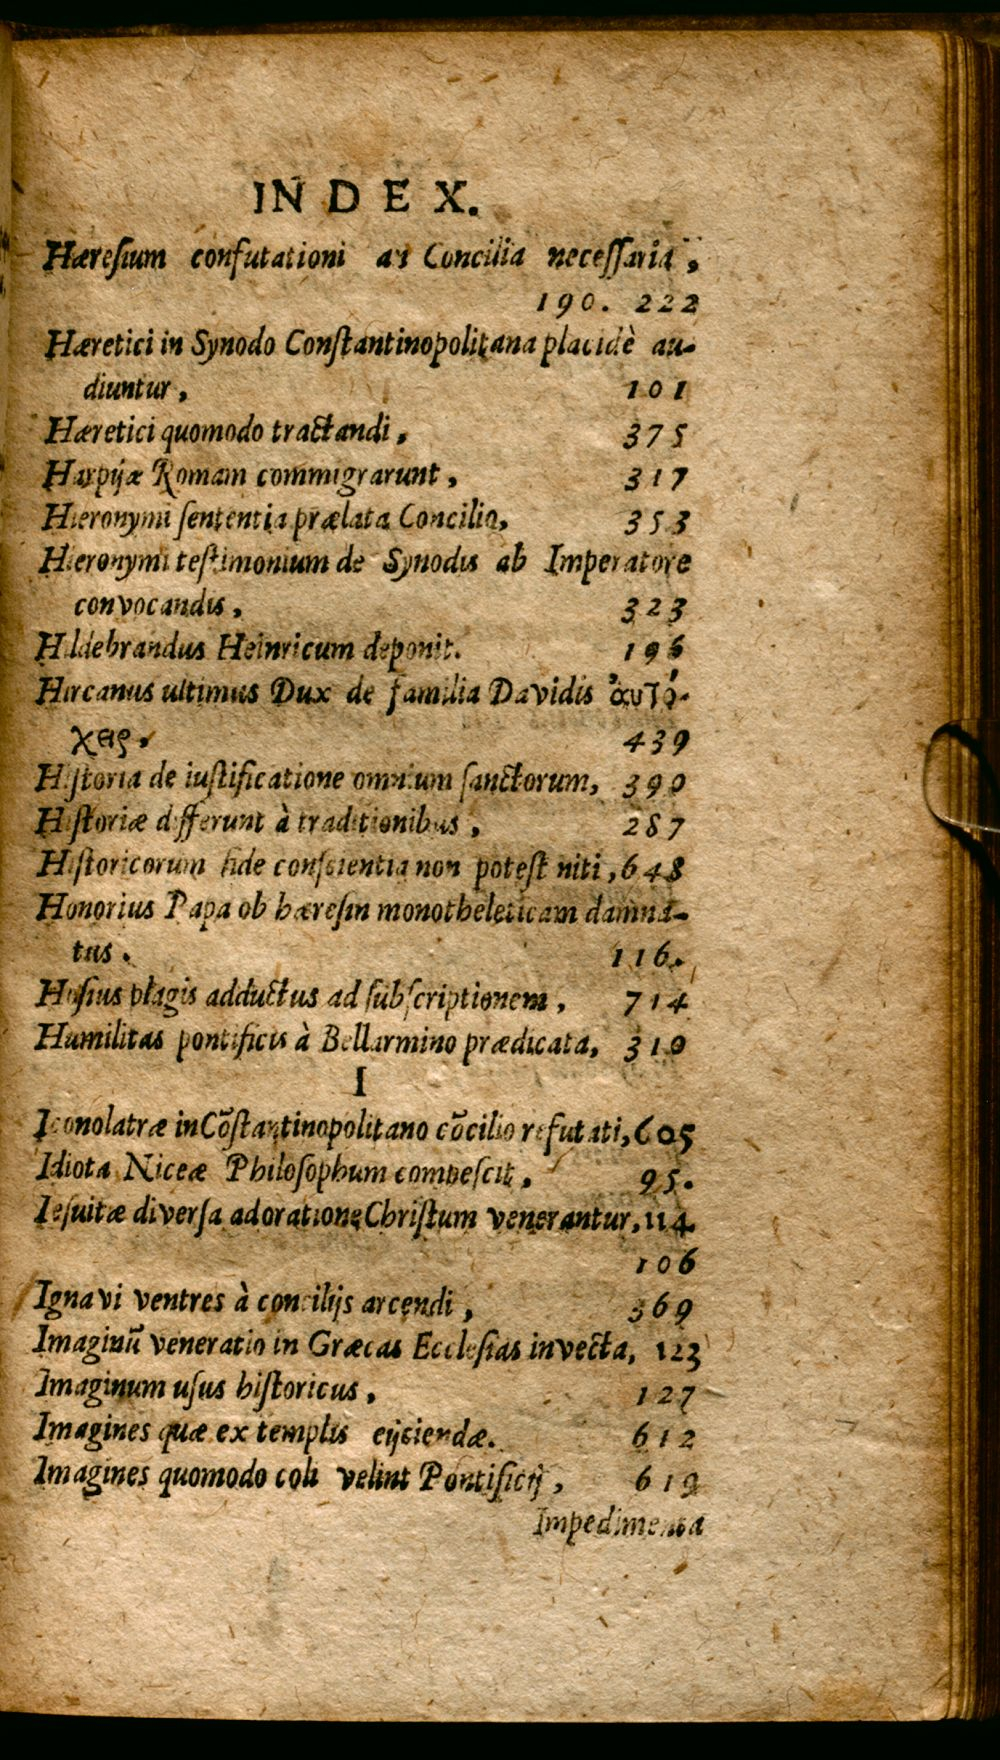 INDEX.
Hæresium confutationi an Concilia necessaria,
190. 222
Hæretici in Synodo Constantinopolitana placidè au-
diuntur, 101
Hæretici quomodo tractandi, 375
Harpijæ Romam commigrarunt, 317
Hieronymi sententia prælata Concilio, 353
Hieronymi testimonium de Synodis ab Imperatore
convocandis, 323
Hildebrandus Heinricum deponit. 196
Hircanus ultimus Dux de familia Davidis ἀυτό-
χειρ, 439
Historia de iustificatione omnium sanctorum, 390
Historiæ differunt à traditionibus, 287
Historicorum fide conscientia non potest niti, 648
Honorius Papa ob hæresin monotheleticam damna-
tus. 116.
Hosius plagis adductus ad subscriptionem, 714
Humilitas pontificis à Bellarmino prædicata, 310
I
Iconolatræ in Cōstantinopolitano cōcilio refutati, 605
Idiota Niceæ Philosophum compescit, 95.
Iesuitæ diversa adoratione Christum venerantur, 114
106
Ignavi ventres à concilijs arcendi, 369
Imaginū veneratio in Græcas Ecclesias invecta, 123
Imaginum usus historicus, 127
Imagines quæ ex templis eijciendæ. 612
Imagines quomodo coli velint Pontificij, 619
Impedimenta